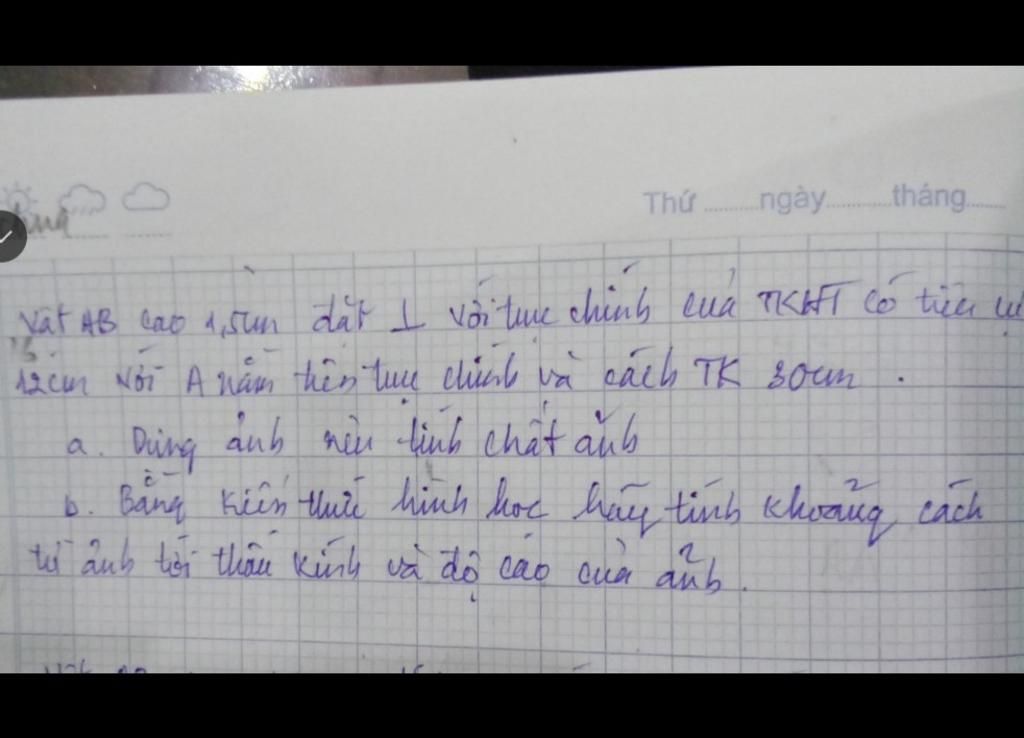 Thứ ........ngày..........tháng......
Vật AB cao 1,5cm đặt ⊥ với trục chính của TKHT có tiêu cự
12cm với A nằm trên trục chính và cách TK 30cm .
a. Dựng ảnh nêu tính chất ảnh
b. Bằng kiến thức hình học hãy tính khoảng cách
từ ảnh tới thấu kính và độ cao của ảnh .